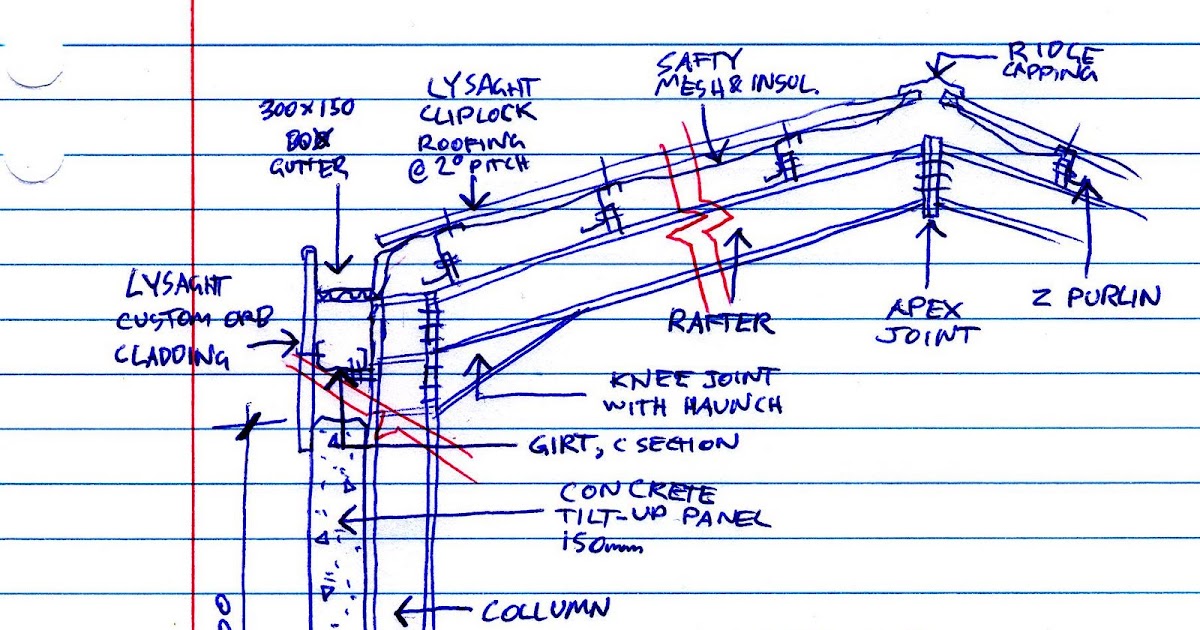 RIDGE
CAPPING
SAFTY
MESH & INSUL.
LYSAGHT
CLIPLOCK
ROOFING
@ 2° PITCH
300x150
BOX
GUTTER
LYSAGHT
CUSTOM ORB
CLADDING
RAFTER
APEX
JOINT
Z PURLIN
KNEE JOINT
WITH HAUNCH
GIRT, C SECTION
CONCRETE
TILT-UP PANEL
150mm
COLLUMN